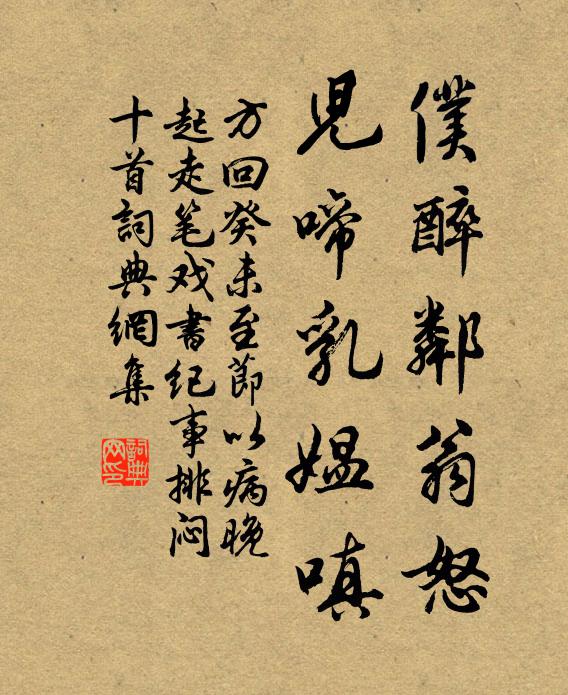 僕醉鄰翁怒
兒啼乳媼嗔
方回癸未至節以病晚
起走笔戏書纪事排闷
十首詞典網集
詞典网印